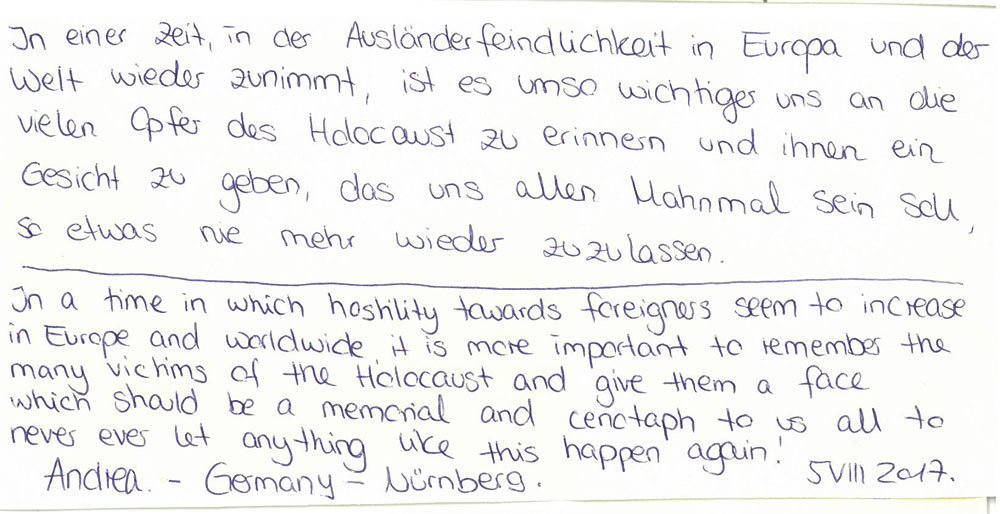 In einer Zeit, in der Ausländerfeindlichkeit in Europa und der
Welt wieder zunimmt, ist es umso wichtiger uns an die
vielen Opfer des Holocaust zu erinnern und ihnen ein
Gesicht zu geben, das uns allen Mahnmal sein soll,
so etwas nie mehr wieder zuzulassen.
In a time in which hostility towards foreigners seem to increase
in Europe and worldwide, it is more important to remember the
many victims of the Holocaust and give them a face
which should be a memorial and cenotaph to us all to
never ever let anything like this happen again!
Andrea. - Germany - Nürnberg. 5 VIII 2017.